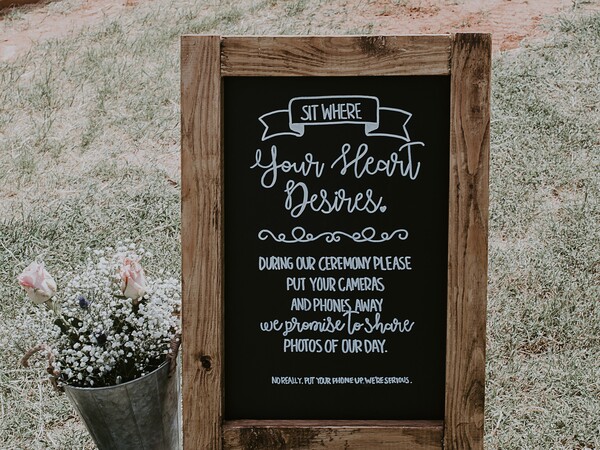 SIT WHERE
Your Heart
Desires.
DURING OUR CEREMONY PLEASE
PUT YOUR CAMERAS
AND PHONES AWAY
we promise to share
PHOTOS OF OUR DAY.
NO REALLY. PUT YOUR PHONE UP. WE'RE SERIOUS.